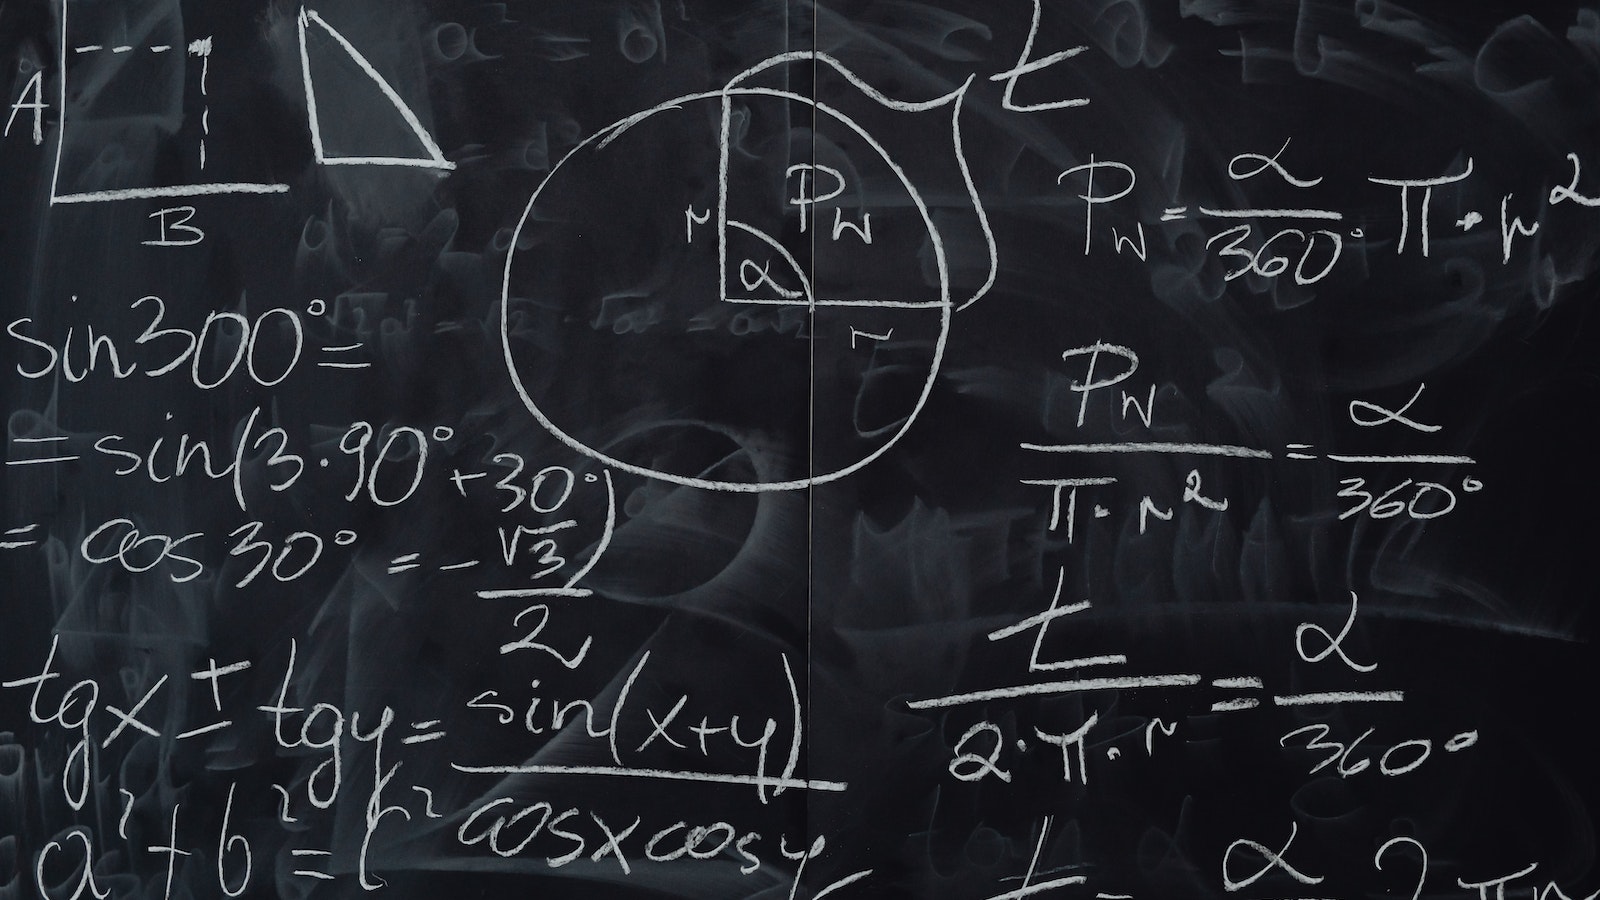 A
B
sin300°=
=sin(3·90°+30°)
= cos 30° = -√3/2
tgx ± tgy = sin(x+y)/cosxcosy
a²+b²=c²
t
r
P_W
α
r
P_W = α/360° · π · r²
P_W/π·r² = α/360°
t/2·π·r = α/360°